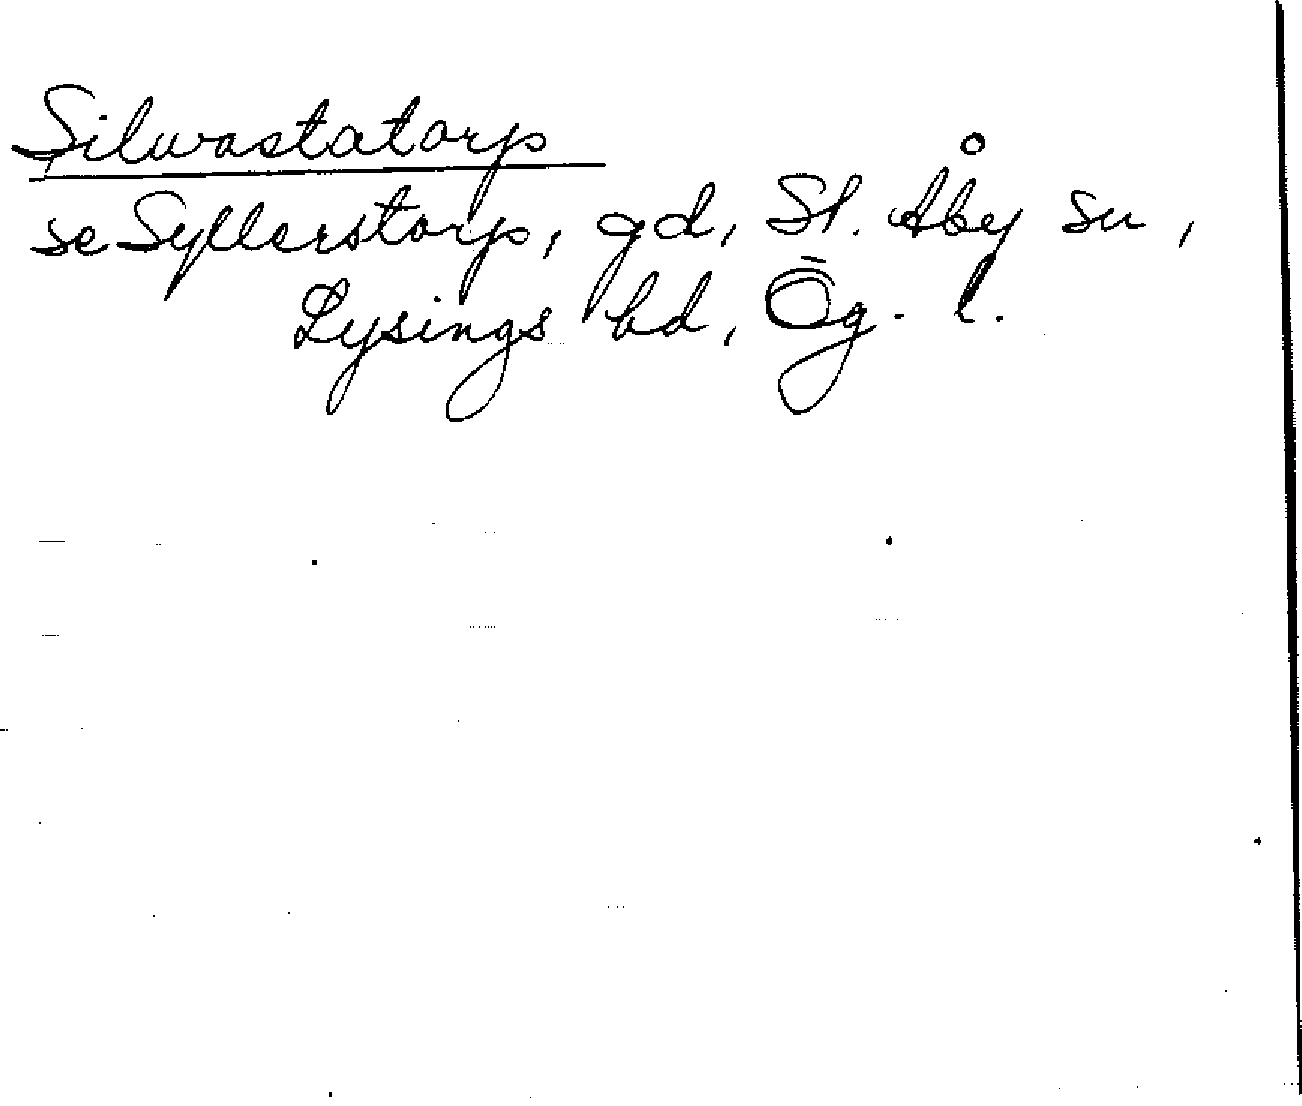 Silwastatorp
se Syllerstorp, gd, St. Åby sn,
Lysings hd, Ög. l.